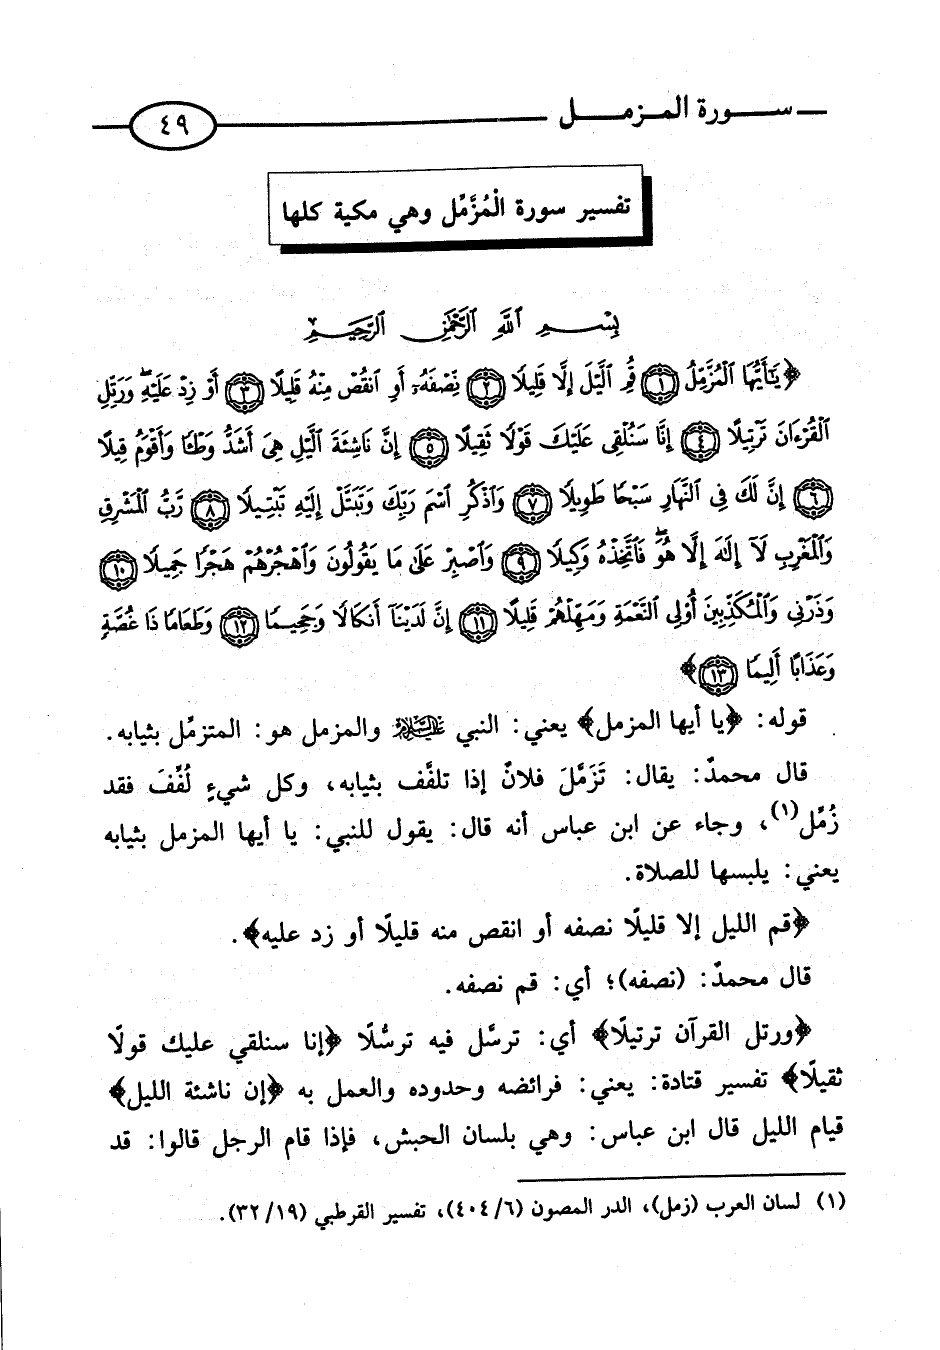 سورة المزمل ٤٩
تفسير سورة الْمُزَّمِّل وهي مكية كلها
بِسْمِ ٱللَّهِ ٱلرَّحْمَٰنِ ٱلرَّحِيمِ
﴿يَٰٓأَيُّهَا ٱلْمُزَّمِّلُ ١ قُمِ ٱلَّيْلَ إِلَّا قَلِيلًا ٢ نِّصْفَهُۥٓ أَوِ ٱنقُصْ مِنْهُ قَلِيلًا ٣ أَوْ زِدْ عَلَيْهِ وَرَتِّلِ
ٱلْقُرْءَانَ تَرْتِيلًا ٤ إِنَّا سَنُلْقِى عَلَيْكَ قَوْلًا ثَقِيلًا ٥ إِنَّ نَاشِئَةَ ٱلَّيْلِ هِىَ أَشَدُّ وَطْـًٔا وَأَقْوَمُ قِيلًا
٦ إِنَّ لَكَ فِى ٱلنَّهَارِ سَبْحًا طَوِيلًا ٧ وَٱذْكُرِ ٱسْمَ رَبِّكَ وَتَبَتَّلْ إِلَيْهِ تَبْتِيلًا ٨ رَّبُّ ٱلْمَشْرِقِ
وَٱلْمَغْرِبِ لَآ إِلَٰهَ إِلَّا هُوَ فَٱتَّخِذْهُ وَكِيلًا ٩ وَٱصْبِرْ عَلَىٰ مَا يَقُولُونَ وَٱهْجُرْهُمْ هَجْرًا جَمِيلًا ١٠
وَذَرْنِى وَٱلْمُكَذِّبِينَ أُو۟لِى ٱلنَّعْمَةِ وَمَهِّلْهُمْ قَلِيلًا ١١ إِنَّ لَدَيْنَآ أَنكَالًا وَجَحِيمًا ١٢ وَطَعَامًا ذَا غُصَّةٍ
وَعَذَابًا أَلِيمًا ١٣﴾
قوله: ﴿يا أيها المزمل﴾ يعني: النبي عليه السلام والمزمل هو: المتزمِّل بثيابه.
قال محمدٌ: يقال: تَزَمَّلَ فلانٌ إذا تلفَّف بثيابه، وكل شيءٍ لُفِّفَ فقد
زُمِّل(١)، وجاء عن ابن عباس أنه قال: يقول للنبي: يا أيها المزمل بثيابه
يعني: يلبسها للصلاة.
﴿قم الليل إلا قليلًا نصفه أو انقص منه قليلًا أو زد عليه﴾.
قال محمدٌ: (نصفه)؛ أي: قم نصفه.
﴿ورتل القرآن ترتيلًا﴾ أي: ترسَّل فيه ترسُّلًا ﴿إنا سنلقي عليك قولًا
ثقيلًا﴾ تفسير قتادة: يعني: فرائضه وحدوده والعمل به ﴿إن ناشئة الليل﴾
قيام الليل قال ابن عباس: وهي بلسان الحبش، فإذا قام الرجل قالوا: قد
(١) لسان العرب (زمل)، الدر المصون (٤٠٤/٦)، تفسير القرطبي (٣٢/١٩).